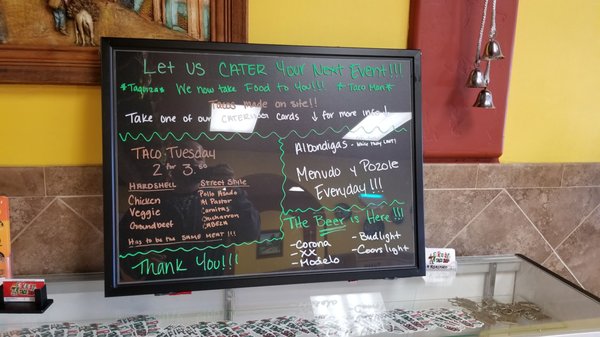 Let us CATER Your Next Event!!!
*Taquiza* We now take Food to You!!! *Taco Man*
Tacos made on site!!
Take one of our CATERing Cards ↓ for more info!
TACO Tuesday
2 for 3.50
HARDSHELL
Chicken
Veggie
Groundbeef
Street Style
Pollo Asado
Al Pastor
Carnitas
Chicharron
CABEZA
Has to be the SAME MEAT!!!
Thank You!!!
Albondigas -
Menudo y Pozole
Everyday!!!
The Beer is Here!!!
-Corona
-XX
-Modelo
-Budlight
-Coors light